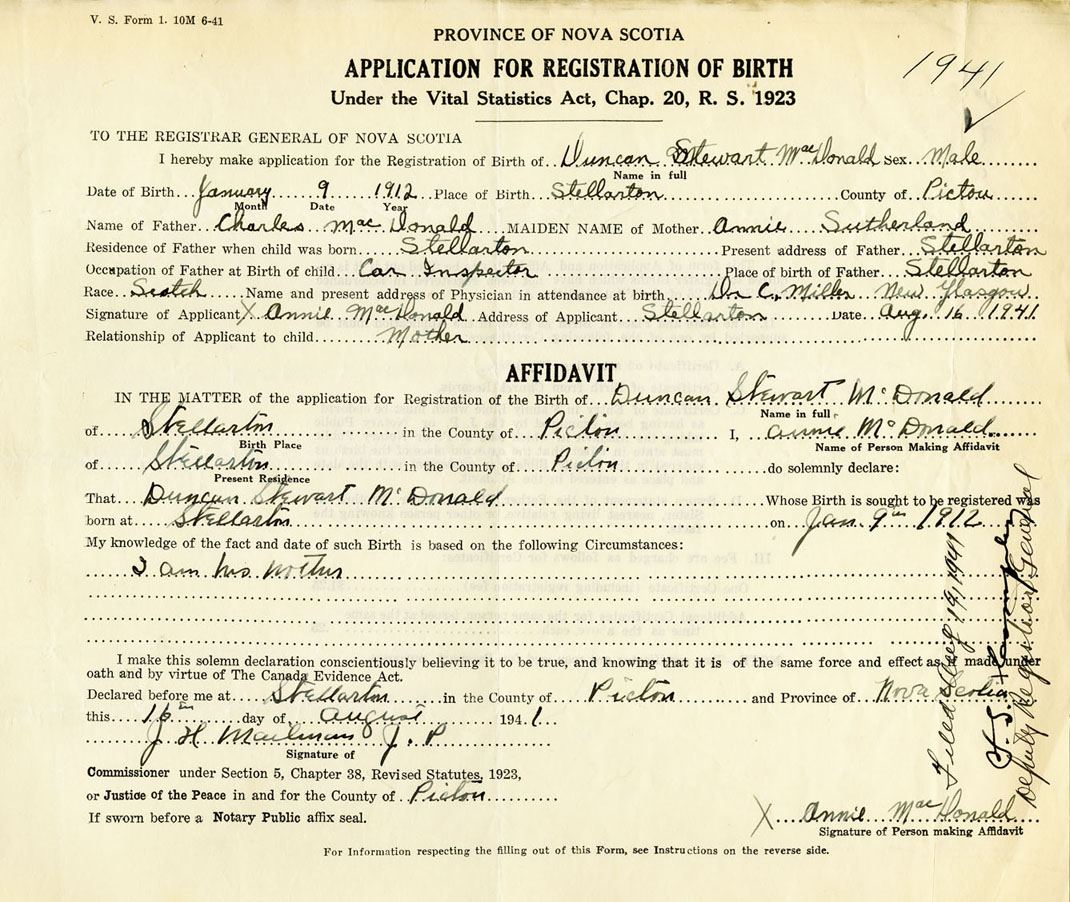 V. S. Form 1. 10M 6-41
PROVINCE OF NOVA SCOTIA
1941
APPLICATION FOR REGISTRATION OF BIRTH
Under the Vital Statistics Act, Chap. 20, R. S. 1923
TO THE REGISTRAR GENERAL OF NOVA SCOTIA
I hereby make application for the Registration of Birth of Duncan Stewart MacDonald sex Male
Name in full
Date of Birth January 9 1912 Place of Birth Stellarton County of Pictou
Month Date Year
Name of Father Charles MacDonald MAIDEN NAME of Mother Annie Sutherland
Residence of Father when child was born Stellarton Present address of Father Stellarton
Occupation of Father at Birth of child Car Inspector Place of birth of Father Stellarton
Race Scotch Name and present address of Physician in attendance at birth Dr C. Miller New Glasgow
Signature of Applicant X Annie MacDonald Address of Applicant Stellarton Date Aug. 16 1941
Relationship of Applicant to child Mother
AFFIDAVIT
IN THE MATTER of the application for Registration of the Birth of Duncan Stewart McDonald
Name in full
of Stellarton in the County of Pictou I, Annie McDonald
Birth Place Name of Person Making Affidavit
of Stellarton in the County of Pictou do solemnly declare:
Present Residence
That Duncan Stewart McDonald Whose Birth is sought to be registered was
born at Stellarton on Jan. 9th 1912
My knowledge of the fact and date of such Birth is based on the following Circumstances:
I am his mother
I make this solemn declaration conscientiously believing it to be true, and knowing that it is of the same force and effect as if made under
oath and by virtue of The Canada Evidence Act.
Declared before me at Stellarton in the County of Pictou and Province of Nova Scotia
this 16th day of August 1941
J H Mailman J. P
Signature of
Commissioner under Section 5, Chapter 38, Revised Statutes, 1923,
or Justice of the Peace in and for the County of Pictou
If sworn before a Notary Public affix seal.
X Annie MacDonald
Signature of Person making Affidavit
For Information respecting the filling out of this Form, see Instructions on the reverse side.
Filed Aug 19, 1941
Deputy Registrar General